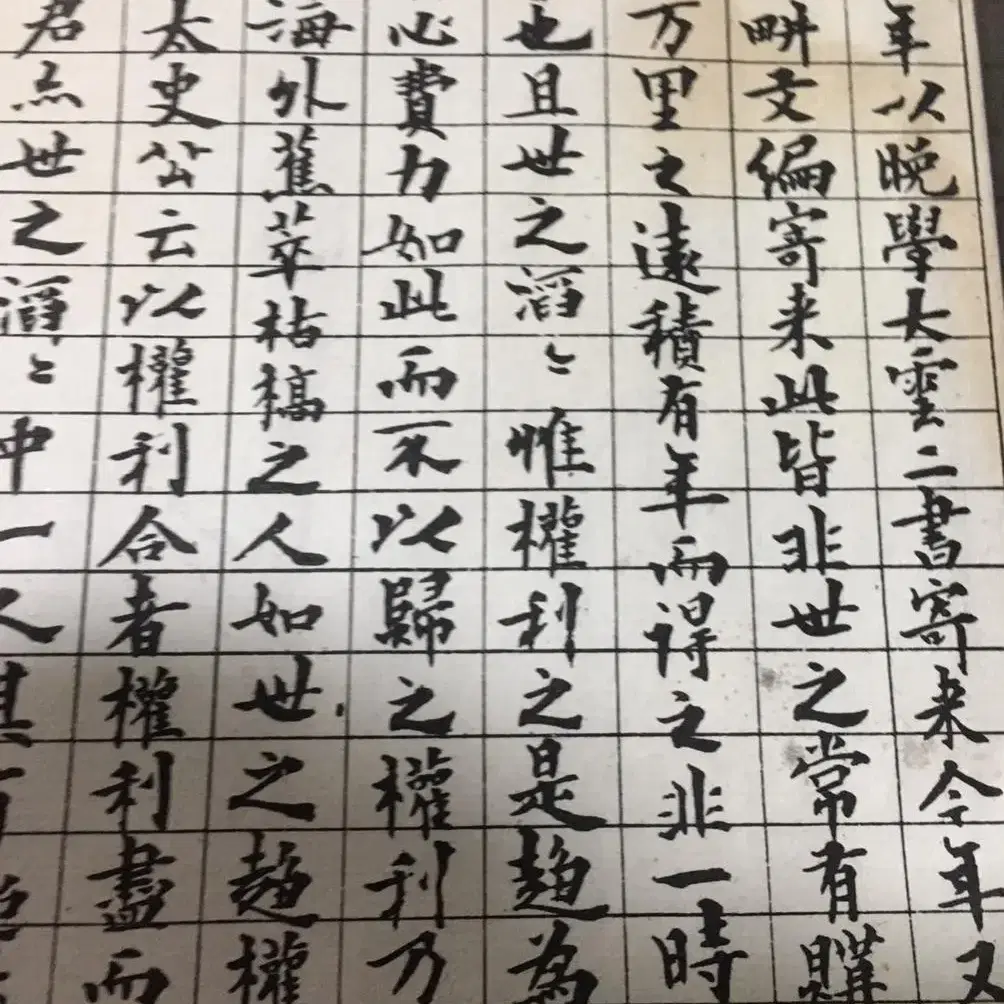 年以晚學大雲二書寄来今年又
畊文編寄来此皆非世之常有購
万里之遠積有年而得之非一時
也且世之滔〻惟權利之是趨為
心費力如此而不以歸之權利乃
海外蕉萃枯槁之人如世之趨權
太史公云以權利合者權利盡而
君亦世之滔〻中一人其有超